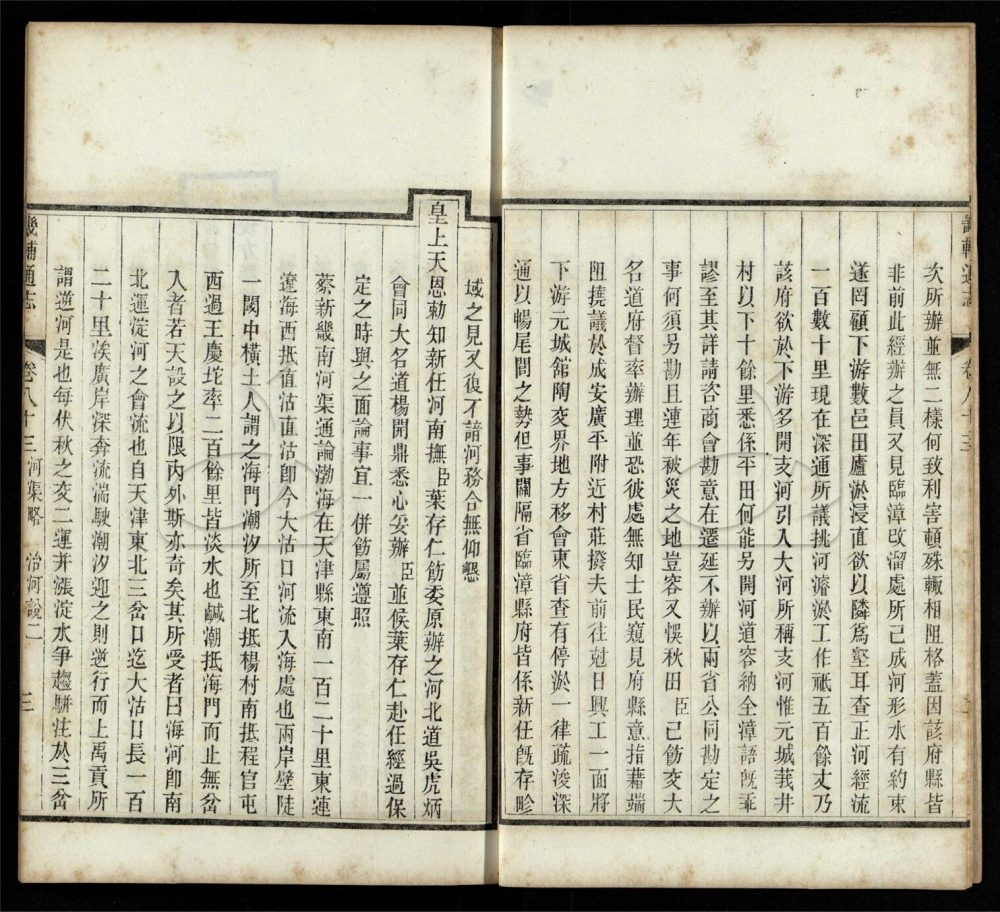 畿輔通志
卷八十三
次所辦並無二樣何致利害頓殊輙相阻格蓋因該府縣皆
非前此經辦之員又見臨漳改溜處所已成河形水有約束
遂罔顧下游數邑田廬淤浸直欲以隣爲壑耳查正河經流
一百數十里現在深通所議挑河濬淤工作祇五百餘丈乃
該府欲於下游多開支河引入大河所稱支河惟元城莪井
村以下十餘里悉係平田何能另開河道容納全漳語旣乖
謬至其詳請咨商會勘意在遷延不辦以兩省公同勘定之
事何須另勘且連年被災之地豈容又悞秋田臣已飭交大
名道府督率辦理並恐彼處無知士民窺見府縣意指藉端
阻撓議於成安廣平附近村莊撥夫前往尅日興工一面將
下游元城舘陶交界地方移會東省查有停淤一律疏浚深
通以暢尾閭之勢但事關隔省臨漳縣府皆係新任旣存畛
域之見又復不諳河務合無仰懇
皇上天恩勅知新任河南撫臣葉存仁飭委原辦之河北道吳虎炳
會同大名道楊開鼎悉心妥辦臣並候葉存仁赴任經過保
定之時與之面論事宜一併飭屬遵照
蔡新畿南河渠通論渤海在天津縣東南一百二十里東連
遼海西抵直沽直沽卽今大沽口河流入海處也兩岸壁陡
一闕中橫土人謂之海門潮汐所至北抵楊村南抵程官屯
西過王慶坨率二百餘里皆淡水也鹹潮抵海門而止無岔
入者若天設之以限內外斯亦奇矣其所受者曰海河卽南
北運淀河之會流也自天津東北三岔口迄大沽口長一百
二十里涘廣岸深奔流湍駛潮汐迎之則逆行而上禹貢所
謂逆河是也每伏秋之交二運并漲淀水爭趨騈注於三岔
畿輔通志
卷八十三 河渠略 治河說二
三